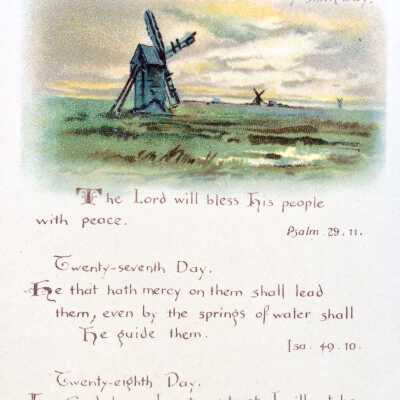 The Lord will bless His people
with peace.
Psalm . 29. 11.
Twenty-seventh Day.
He that hath mercy on them shall lead
them, even by the springs of water shall
He guide them.
Isa. 49. 10.
Twenty-eighth Day.